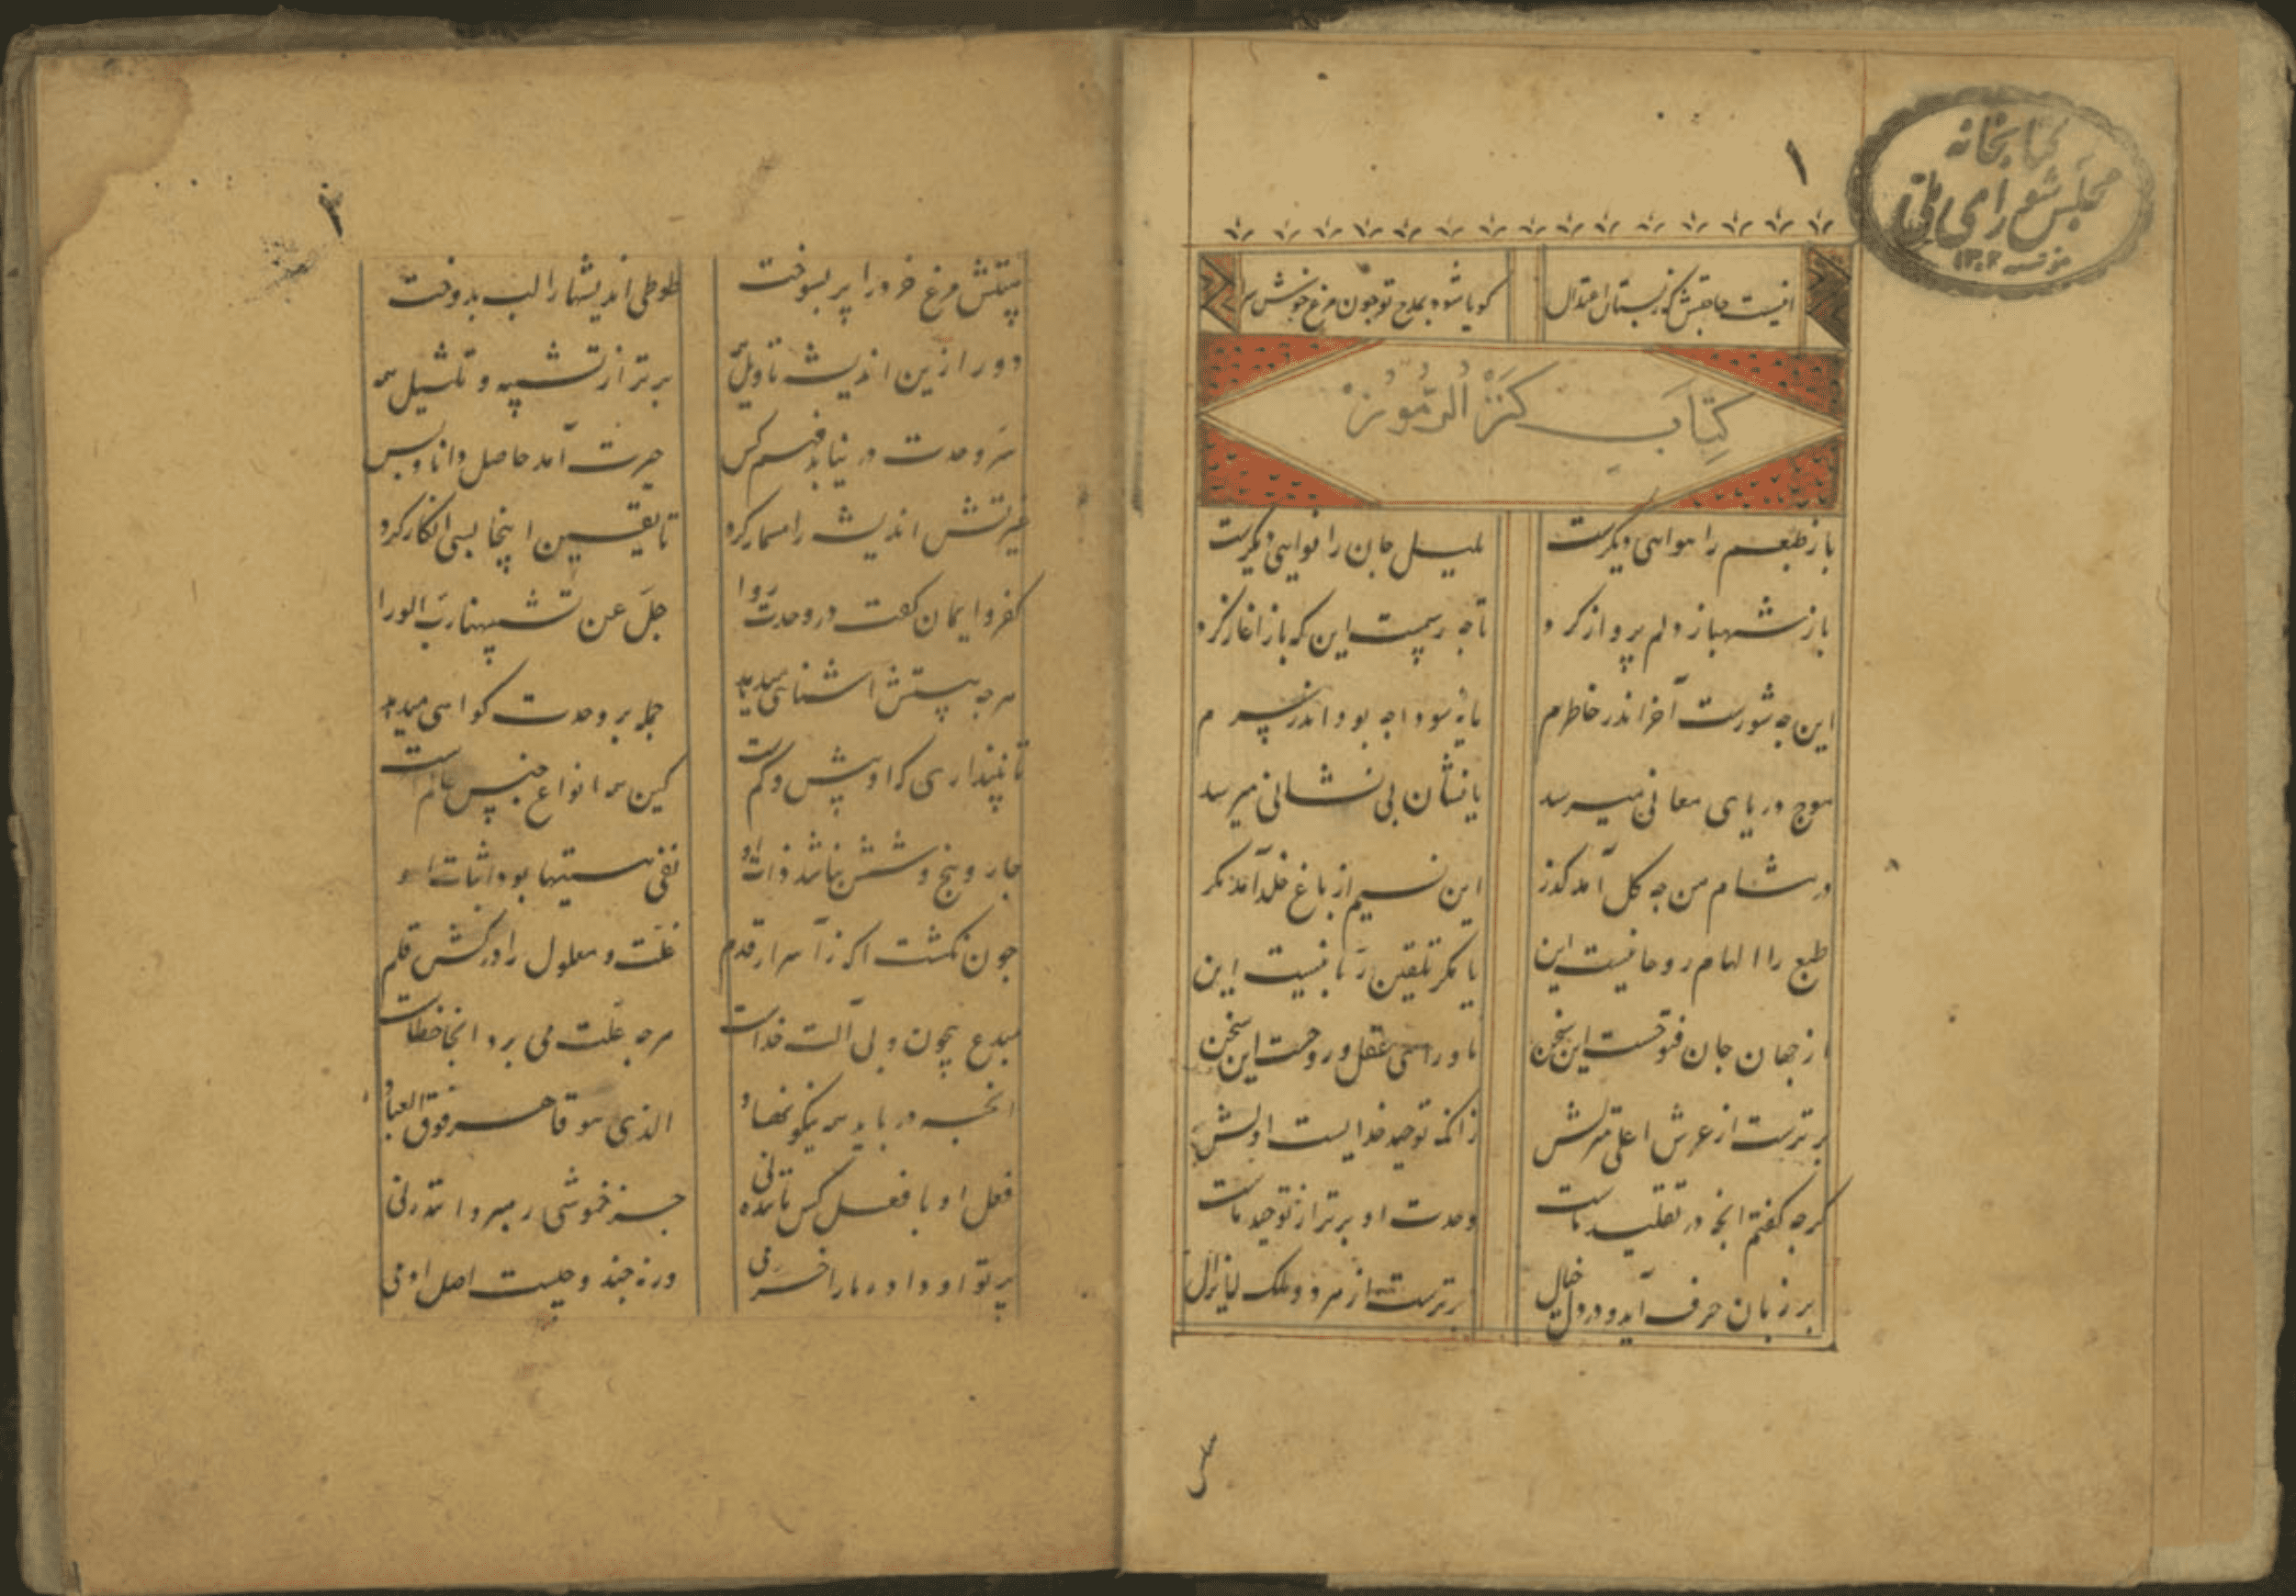 کتابخانه
مجلس شورای ملی
مؤسسه ۱۳۰۲
۱
گویا شود بمدح تو چون مرغ خوش سرا
کتاب کنز الرموز
باز طبعم را هوایی دیگرست بلبل جان را نوایی دیگرست
باز شهباز دلم پرواز کرد تا چه رسمست این که باز اغاز کرد
این چه شورست آخر اندر خاطرم یا چه سودا چه بود اندر سرم
موج دریای معانی میرسد یا نشان بی نشانی میرسد
در مشام من چه گل آمد گذر این نسیم از باغ خلد آمد مگر
طبع را الهام روحانیست این یا مگر تلقین ربانیست این
از جهان جان فتوحست این سخن ماورای عقل و روحست این سخن
برترست از عرش اعلی منزلش زانکه توحید خدایست اولش
گرچه گفتم انچه در تقلید ماست وحدت او برتر از توحید ماست
بر زبان حرف آید و در دل خیال برترست از هر دو ملک لایزال
۲
هیبتش مرغ خرد را پر بسوخت طوطی اندیشها را لب بدوخت
دور ازین اندیشه تاویل همه برتر از تشبیه و تمثیل همه
سر وحدت در نیابد فهم کس حیرت آمد حاصل دانا و بس
غیرتش اندیشه را مسمار کرد تا یقین اینجا بسی انکار کرد
کفر و ایمان گفت در وحدت روا جل عن تشبیهنا رب الورا
هرچه هستش اشنایی میدهد جمله بر وحدت گواهی میدهد
تا نپنداری که او بیش و کمست کین همه انواع جنس عالمست
چار و پنج و شش نباشد ذات او نفی هستیها بود اثبات او
چون نگشت اگه ز اسرار قدم علت و معلول را درکش قلم
مبدع بیچون و بی آلت خداست هرچه علت می برد انجا خطاست
انچه دریابد همه نیکو نهاد الذی هو قاهر فوق العباد
فعل او با فعل کس مانند نی جز خموشی رهبر و پند نی
پرتو او داد ما را خرمی ورنه چند و چیست اصل ادمی